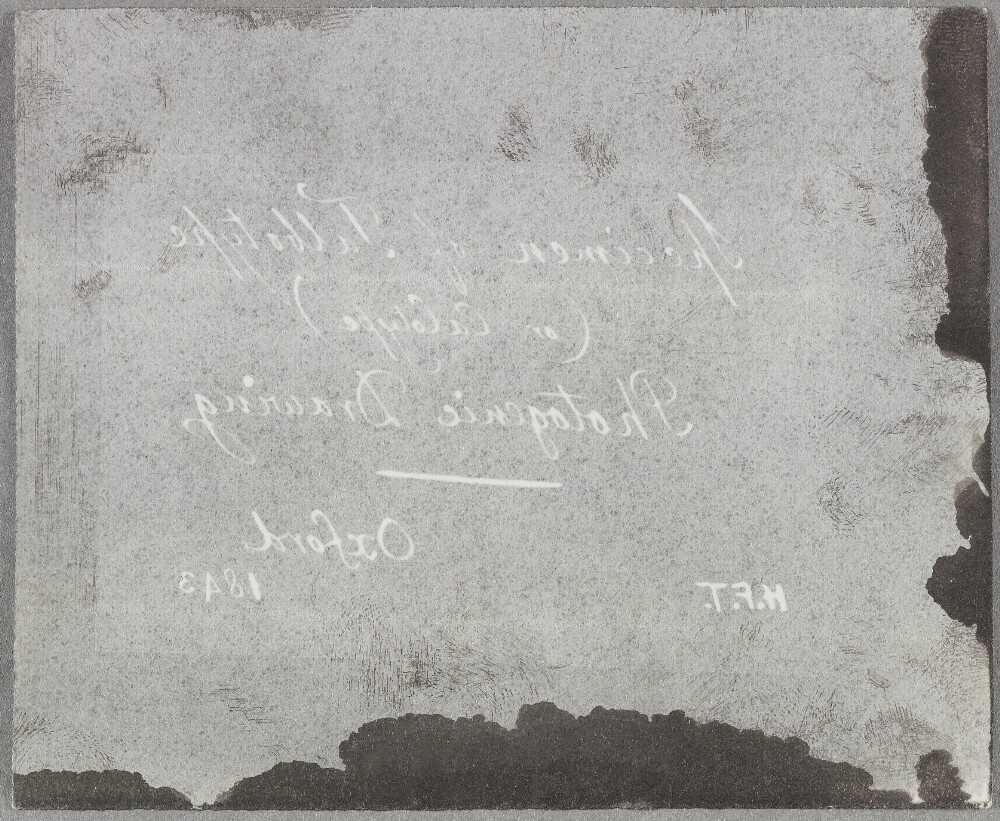 Specimen of Talbotype
(or Calotype)
Photogenic Drawing
Oxford
H.F.T. 1843